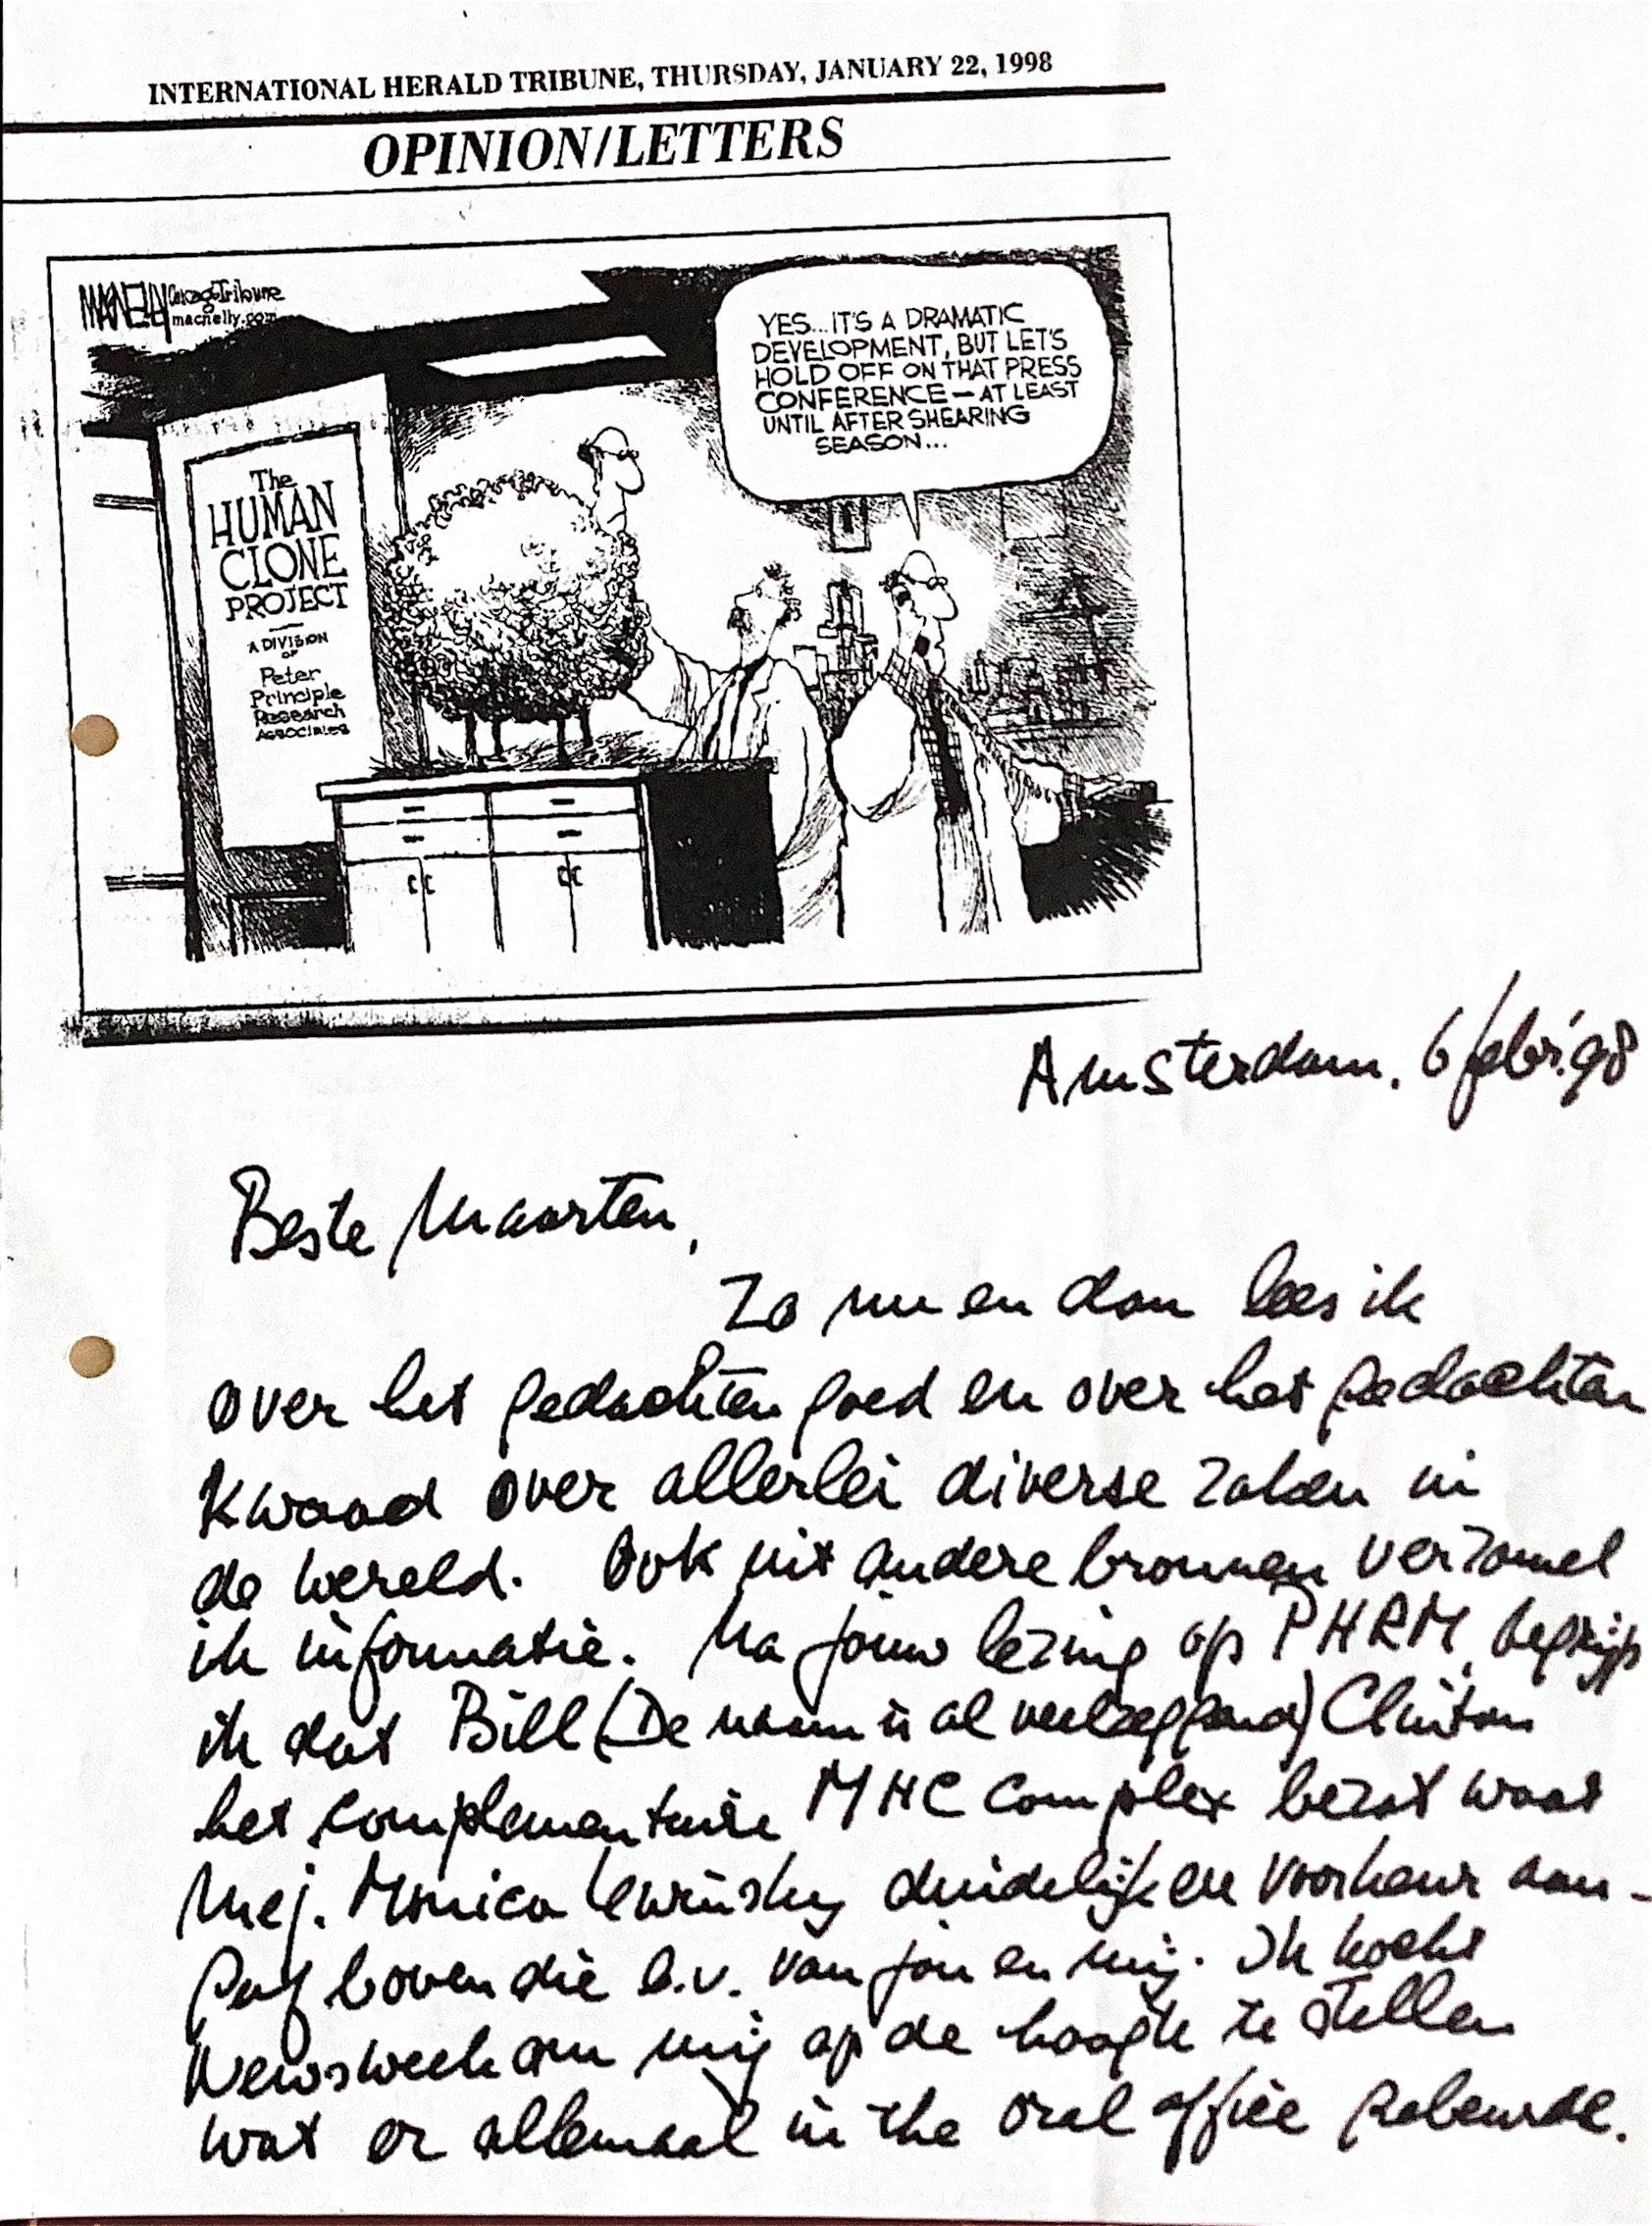 INTERNATIONAL HERALD TRIBUNE, THURSDAY, JANUARY 22, 1998
OPINION/LETTERS
MACNELLY Chicago Tribune
macnelly.com
YES... IT'S A DRAMATIC
DEVELOPMENT, BUT LET'S
HOLD OFF ON THAT PRESS
CONFERENCE — AT LEAST
UNTIL AFTER SHEARING
SEASON...
The
HUMAN
CLONE
PROJECT
A DIVISION
OF
Peter
Principle
Research
Associates
Amsterdam, 6 febr. '98
Beste Maarten,
Zo nu en dan lees ik
over het gedachten goed en over het gedachten
kwaad over allerlei diverse zaken in
de wereld. Ook uit andere bronnen verzamel
ik informatie. Na jouw lezing op PHRM, begrijp
ik dat Bill (De naam is al veelzeggend) Clinton
het complementaire MHC complex bezat waar
Mej. Monica Lewinsky duidelijk een voorkeur aan-
gaf boven die b.v. van jou en mij. Ik kocht
Newsweek om mij op de hoogte te stellen
wat er allemaal in the oral office gebeurde.